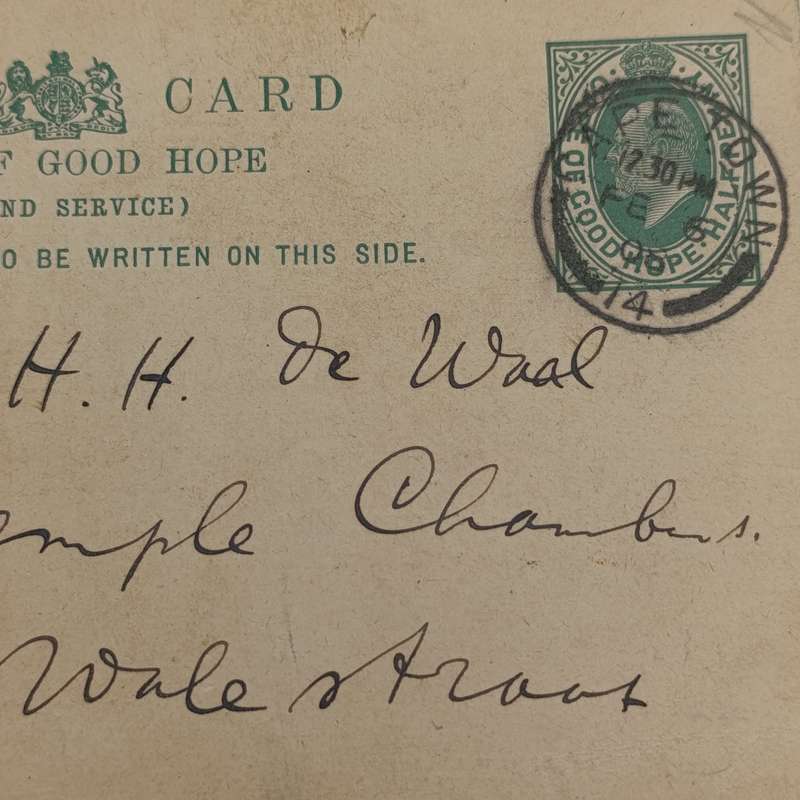 CARD
F GOOD HOPE
ND SERVICE)
O BE WRITTEN ON THIS SIDE.
CAPE OF GOOD HOPE. HALFPENNY
CAPE TOWN
12.30 PM
FE 6
14
H. H. De Waal
emple Chambers.
Wale straat